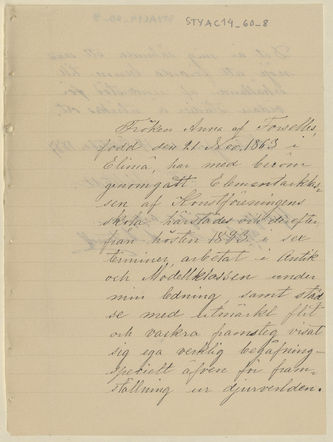 STYAC14_60-8
Fröken Anna af Forselles,
född den 21 Nov. 1863 i
Elimä, har med beröm
genomgått Elementarklas-
sen af Konstföreningens
skola härstädes och derefter
från hösten 1893 i sex
terminer arbetat i Antik
och Modellklassen under
min ledning, samt städ
se med utmärkt flit
och vackra framsteg visat
sig ega verklig begåfning
specielt äfven för fram-
ställning ur djurverlden.